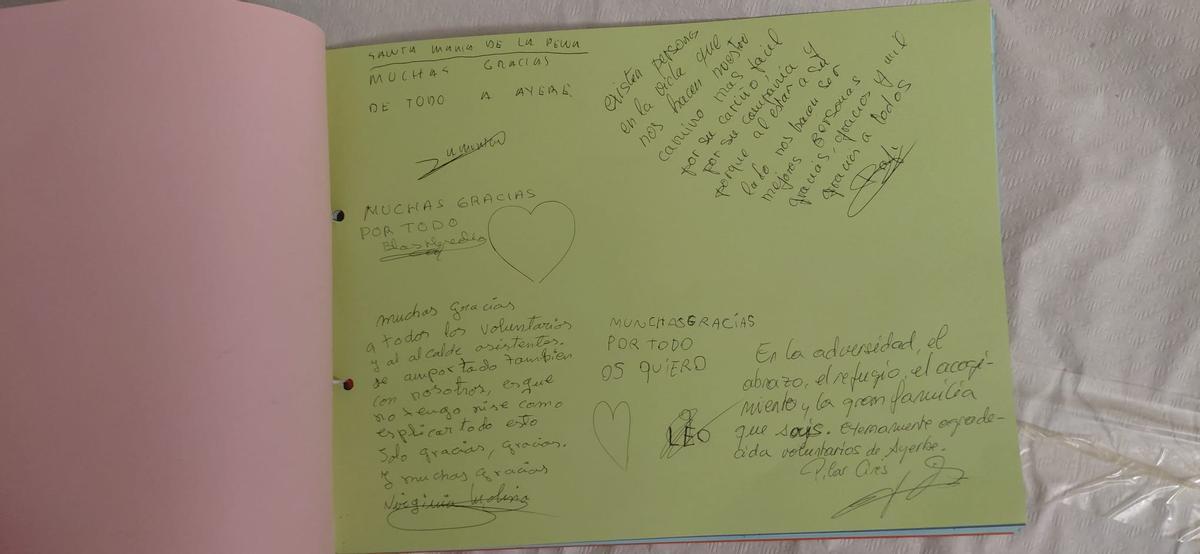 SANTA MARIA DE LA PEÑA
MUCHAS GRACIAS
DE TODO A AYERE
MUCHAS GRACIAS
POR TODO
Blas
muchas gracias
a todos los voluntarios
y al alcalde asistentes.
se an portado tambien
con nosotros, es que
no tengo ni se como
esplicar todo esto
Solo gracias, gracias.
y muchas gracias
Virginia Molina
existen personas
en la vida que
nos hacen nuestro
camino mas facil
por su cariño,
por su compañia y
porque al estar a su
lado nos hacen ser
mejores personas
gracias, gracias y mil
gracias a todos
MUNCHASGRACÍAS
POR TODO
OS QUIERO
LEO
En la adversidad, el
abrazo, el refugio, el acogi-
miento y la gran familia
que sois. Eternamente agrade-
cida voluntarios de Ayerbe.
Pilar Ores